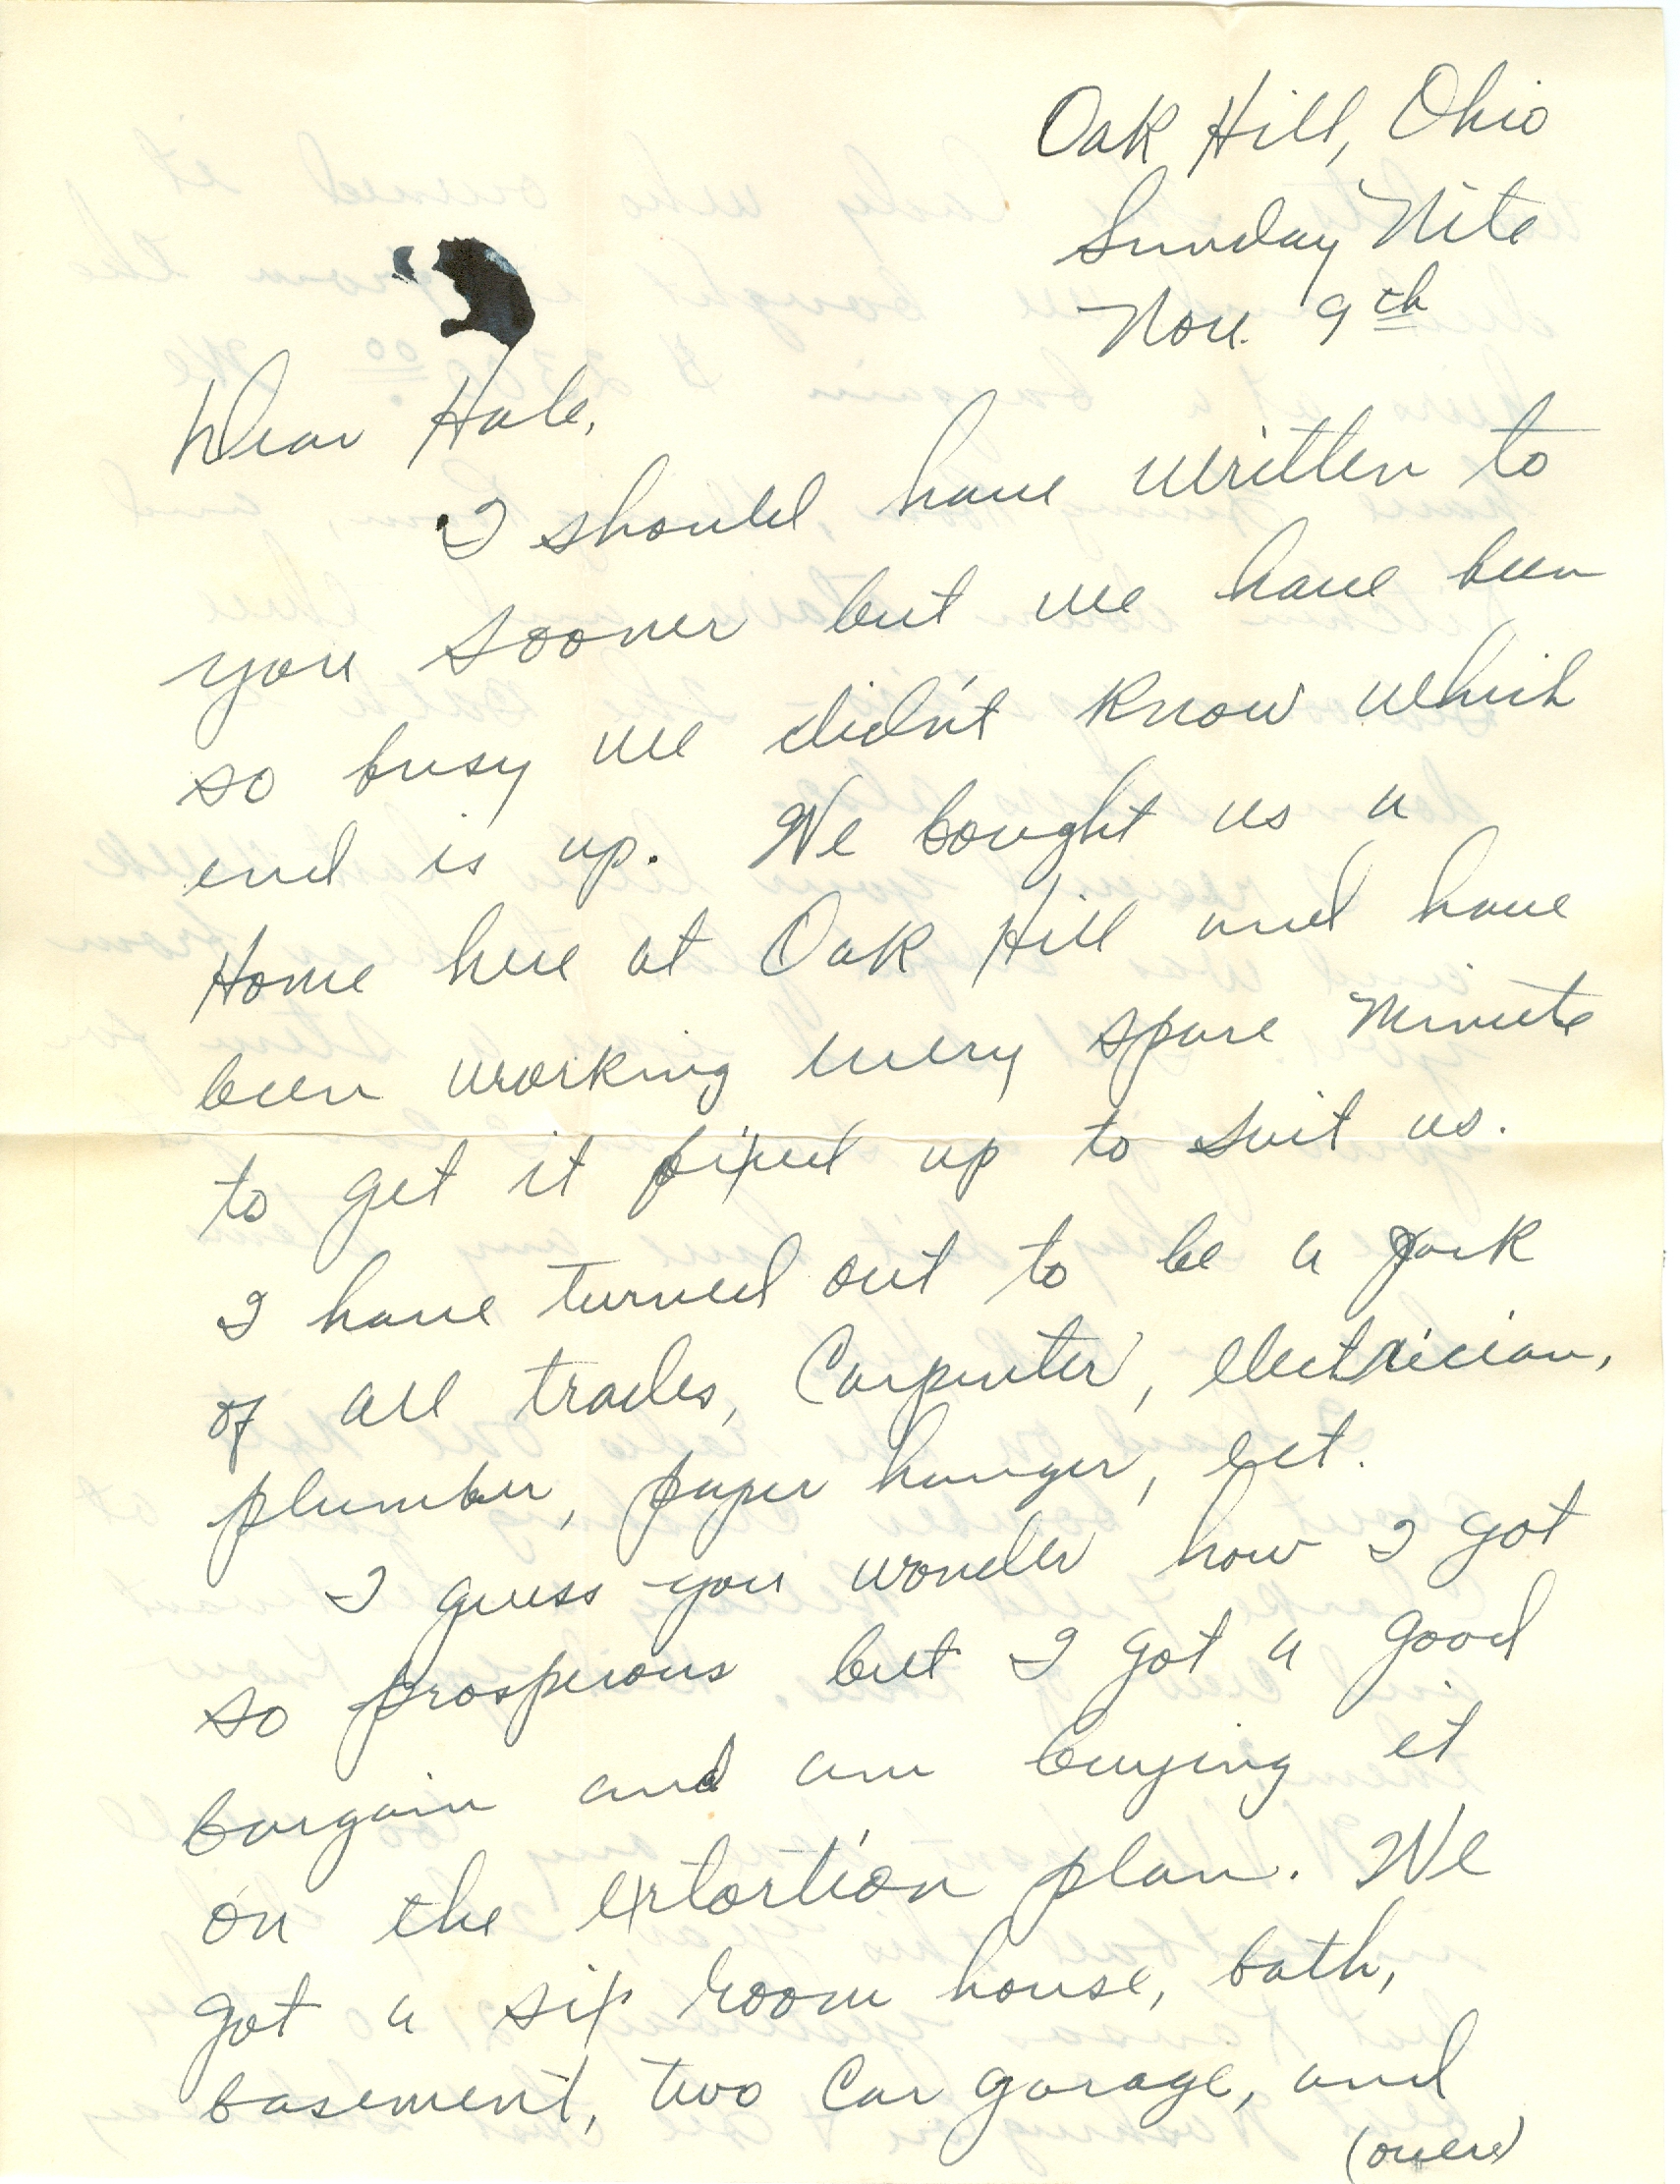 Oak Hill, Ohio
Sunday Nite
Nov. 9th
Dear Hale,
I should have written to
you sooner but we have been
so busy we didn't know which
end is up. We bought us a
Home here at Oak Hill and have
been working every spare minute
to get it fixed up to suit us.
I have turned out to be a jack
of all trades, Carpenter, electrician,
plumber, paper hanger, ect.
I guess you wonder how I got
so prosperous but I got a good
bargain and am buying it
on the extortion plan. We
got a six room house, bath,
basement, two car garage, and
(over)